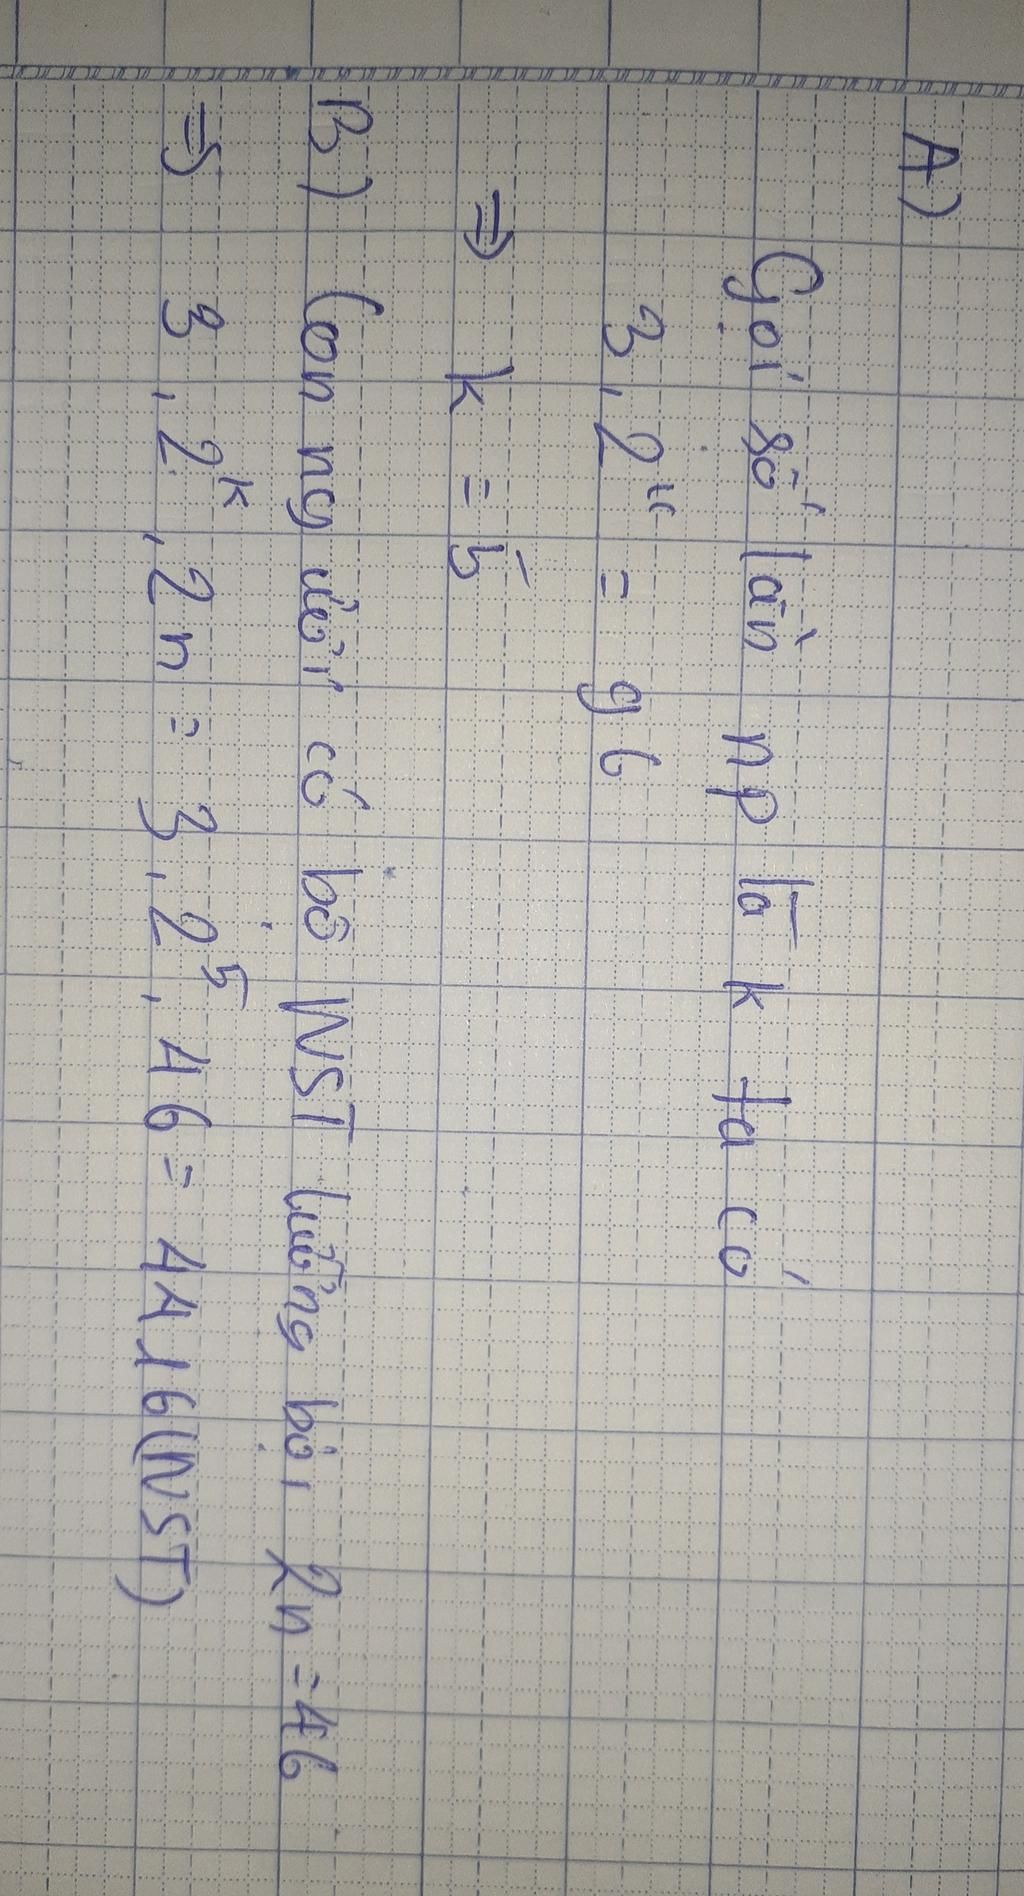 A)
Gọi số lần np là k ta có
3.2ᵏ = 96
⇒ k = 5
B) Con người có bộ NST lưỡng bội 2n = 46
⇒ 3.2ᵏ.2n = 3.2⁵.46 = 4416 (NST)